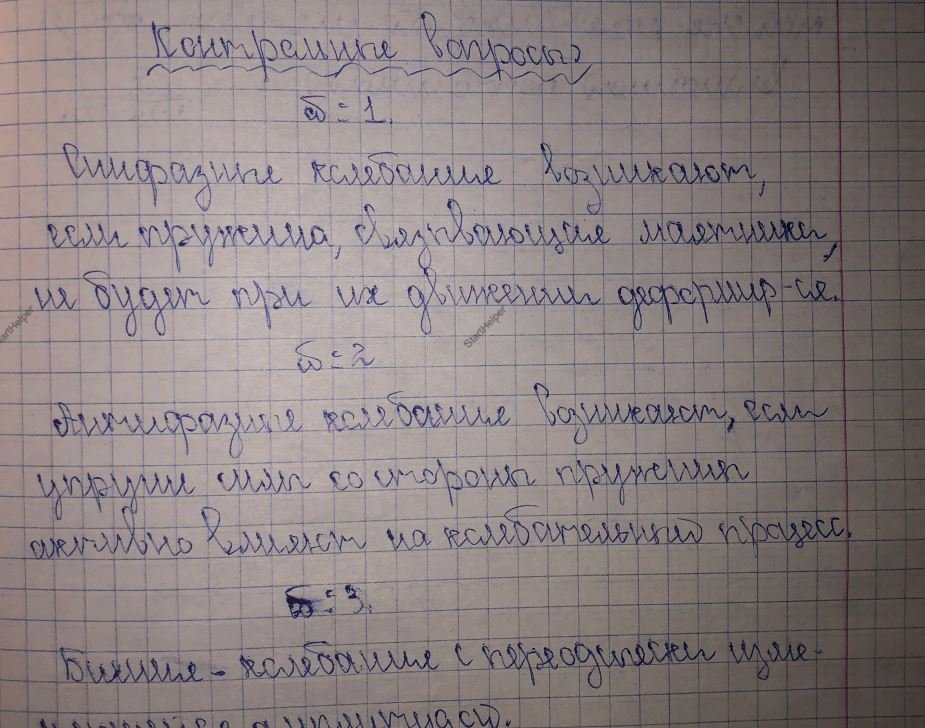 Контрольные вопросы
в = 1.
Синфазные колебания возникают,
если пружина, связывающая маятники,
не будет при их движении деформир-ся.
в = 2
Антифазные колебания возникают, если
упругие силы со стороны пружины
активно влияют на колебательный процесс.
в = 3.
Биения - колебания с периодически изме-
амплитудой.
StartHelper
StartHelper